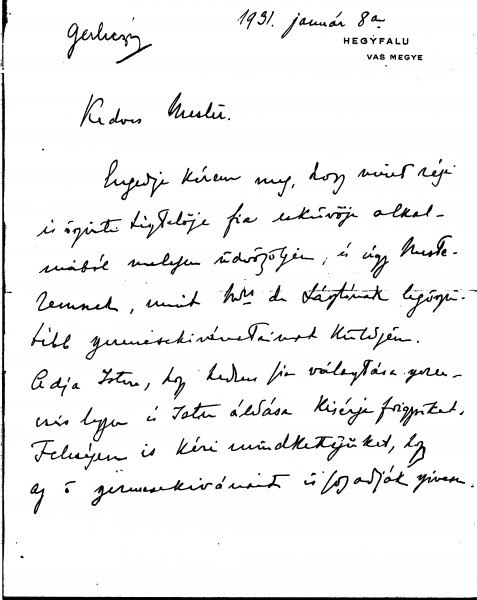 Gerliczy
1931. január 8án
HEGYFALU
VAS MEGYE
Kedves Mester.
Engedje kérem meg, hogy mint régi
és őszinte tisztelője fia esküvője alkal-
mából melegen üdvözöljem, és úgy Meste-
remnek, mint de László­nak legőszin-
tébb szerencsekivánataimat küldjem.
Adja Isten, hogy kedves fia választása szeren-
csés legyen és Isten áldása kisérje frigyüket.
Feleségem is kéri mindkettőjüket, hogy
az ő szerencsekivánatait is fogadják szivesen.